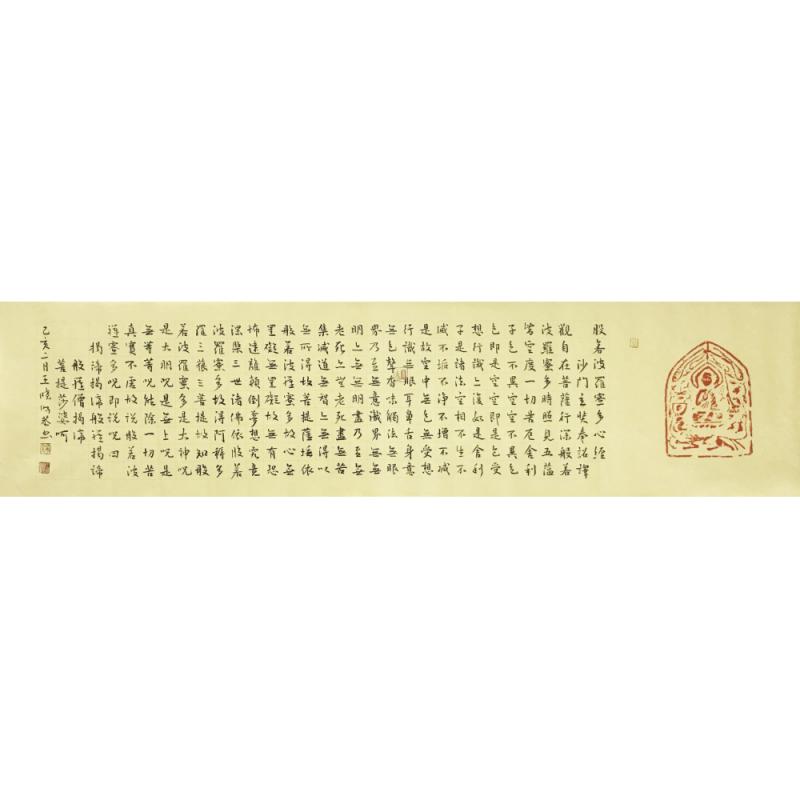 般若波羅蜜多心經
沙門玄奘奉詔譯
觀自在菩薩行深般若
波羅蜜多時照見五蘊
皆空度一切苦厄舍利
子色不異空空不異色
色即是空空即是色受
想行識亦復如是舍利
子是諸法空相不生不
滅不垢不淨不增不減
是故空中無色無受想
行識無眼耳鼻舌身意
無色聲香味觸法無眼
界乃至無意識界無無
明亦無無明盡乃至無
老死亦無老死盡無苦
集滅道無智亦無得以
無所得故菩提薩埵依
般若波羅蜜多故心無
罣礙無罣礙故無有恐
怖遠離顛倒夢想究竟
涅槃三世諸佛依般若
波羅蜜多故得阿耨多
羅三藐三菩提故知般
若波羅蜜多是大神咒
是大明咒是無上咒是
無等等咒能除一切苦
真實不虛故說般若波
羅蜜多咒即說咒曰
揭諦揭諦般羅揭諦
般羅僧揭諦
菩提莎婆呵
己亥二月王曉恭書